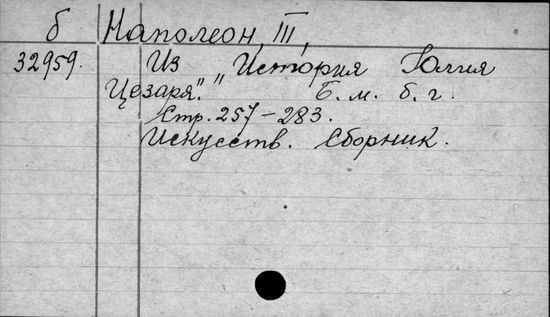 б Наполеон III,
32959. Из "История Юлия
Цезаря". Б. м. б. г.
Стр. 257-283.
Искусств. Сборник.